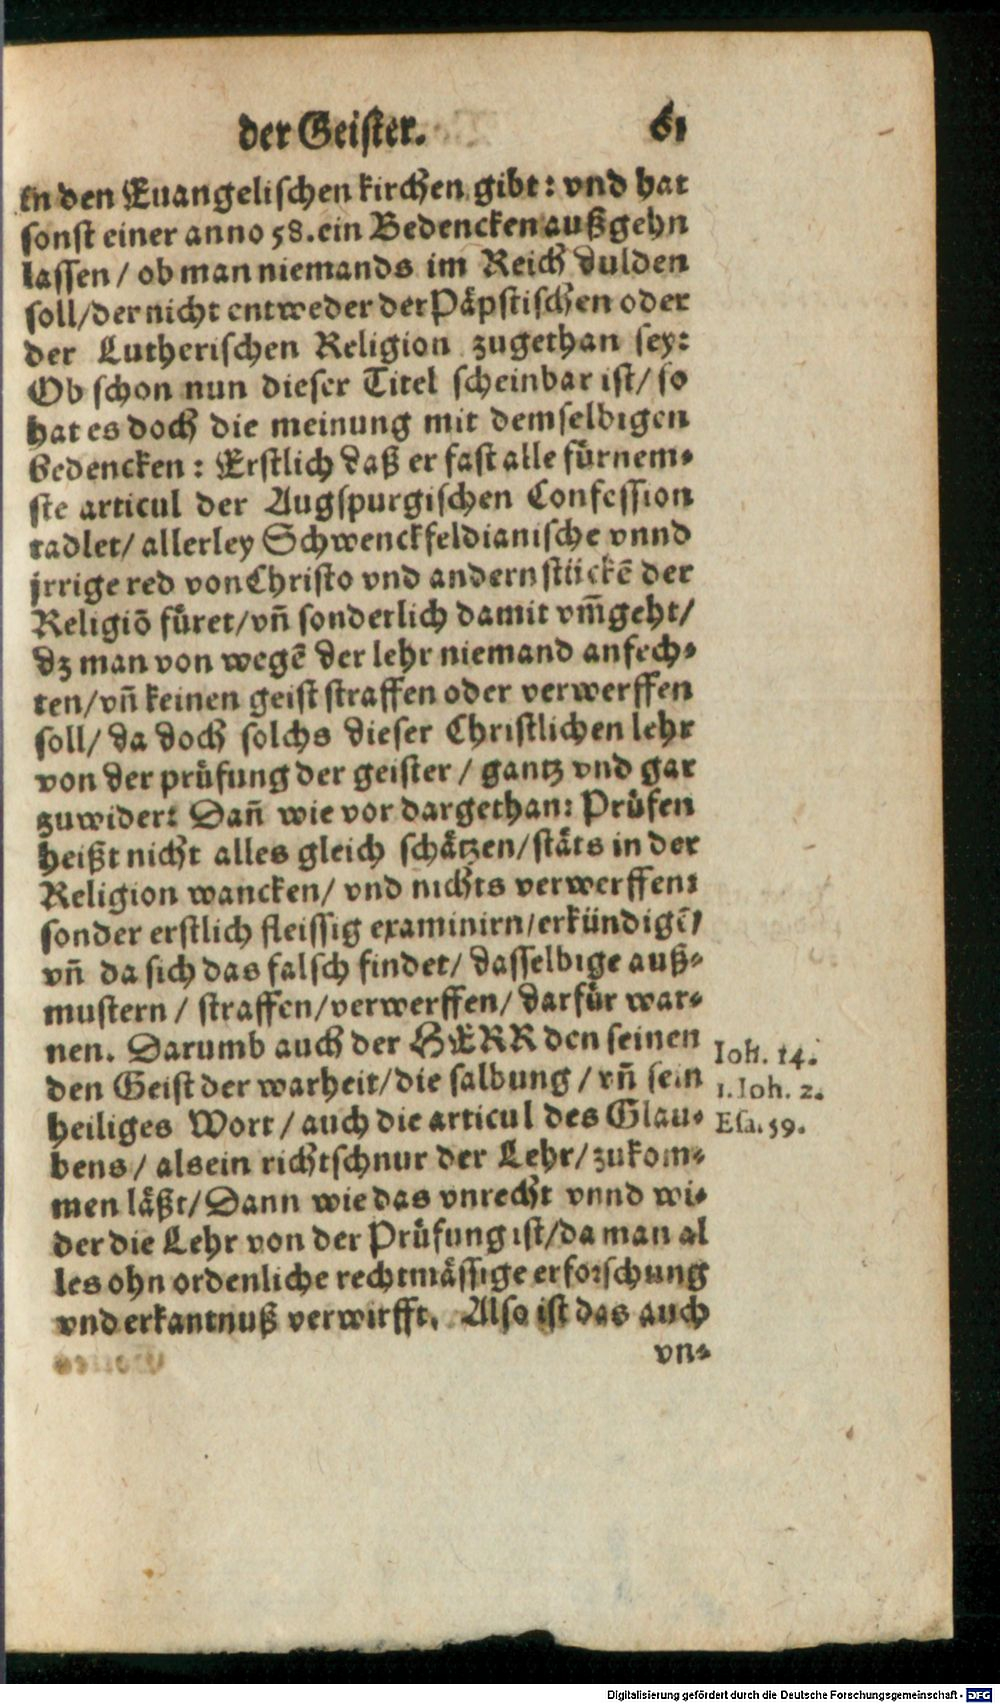 der Geister. 61
in den Euangelischen kirchen gibt: vnd hat
sonst einer anno 58. ein Bedencken außgehn
lassen / ob man niemands im Reich dulden
soll/der nicht entweder der Päpstischen oder
der Lutherischen Religion zugethan sey:
Ob schon nun dieser Titel scheinbar ist/ so
hat es doch die meinung mit demselbigen
bedencken: Erstlich daß er fast alle fürnem⸗
ste articul der Augspurgischen Confession
tadlet/ allerley Schwenckfeldianische vnnd
jrrige red von Christo vnd andern stückē der
Religiō füret/vn̄ sonderlich damit vm̄geht/
dz man von wegē der lehr niemand anfech⸗
ten/vn̄ keinen geist straffen oder verwerffen
soll/ da doch solchs dieser Christlichen lehr
von der prüfung der geister / gantz vnd gar
zuwider: Dan̄ wie vor dargethan: Prüfen
heißt nicht alles gleich schätzen/stäts in der
Religion wancken/ vnd nichts verwerffen:
sonder erstlich fleissig examinirn/erkündigē/
vn̄ da sich das falsch findet/ dasselbige auß⸗
mustern / straffen/verwerffen/ darfür war⸗
nen. Darumb auch der HERR den seinen
den Geist der warheit/die salbung / vn̄ sein
heiliges Wort / auch die articul des Glau⸗
bens / als ein richtschnur der Lehr/ zukom⸗
men läßt/ Dann wie das vnrecht vnnd wi⸗
der die Lehr von der Prüfung ist/da man al
les ohn ordenliche rechtmässige erforschung
vnd erkantnuß verwirfft. Also ist das auch
vn⸗
Ioh. 14.
1. Ioh. 2.
Esa. 59.
Digitalisierung gefördert durch die Deutsche Forschungsgemeinschaft - DFG